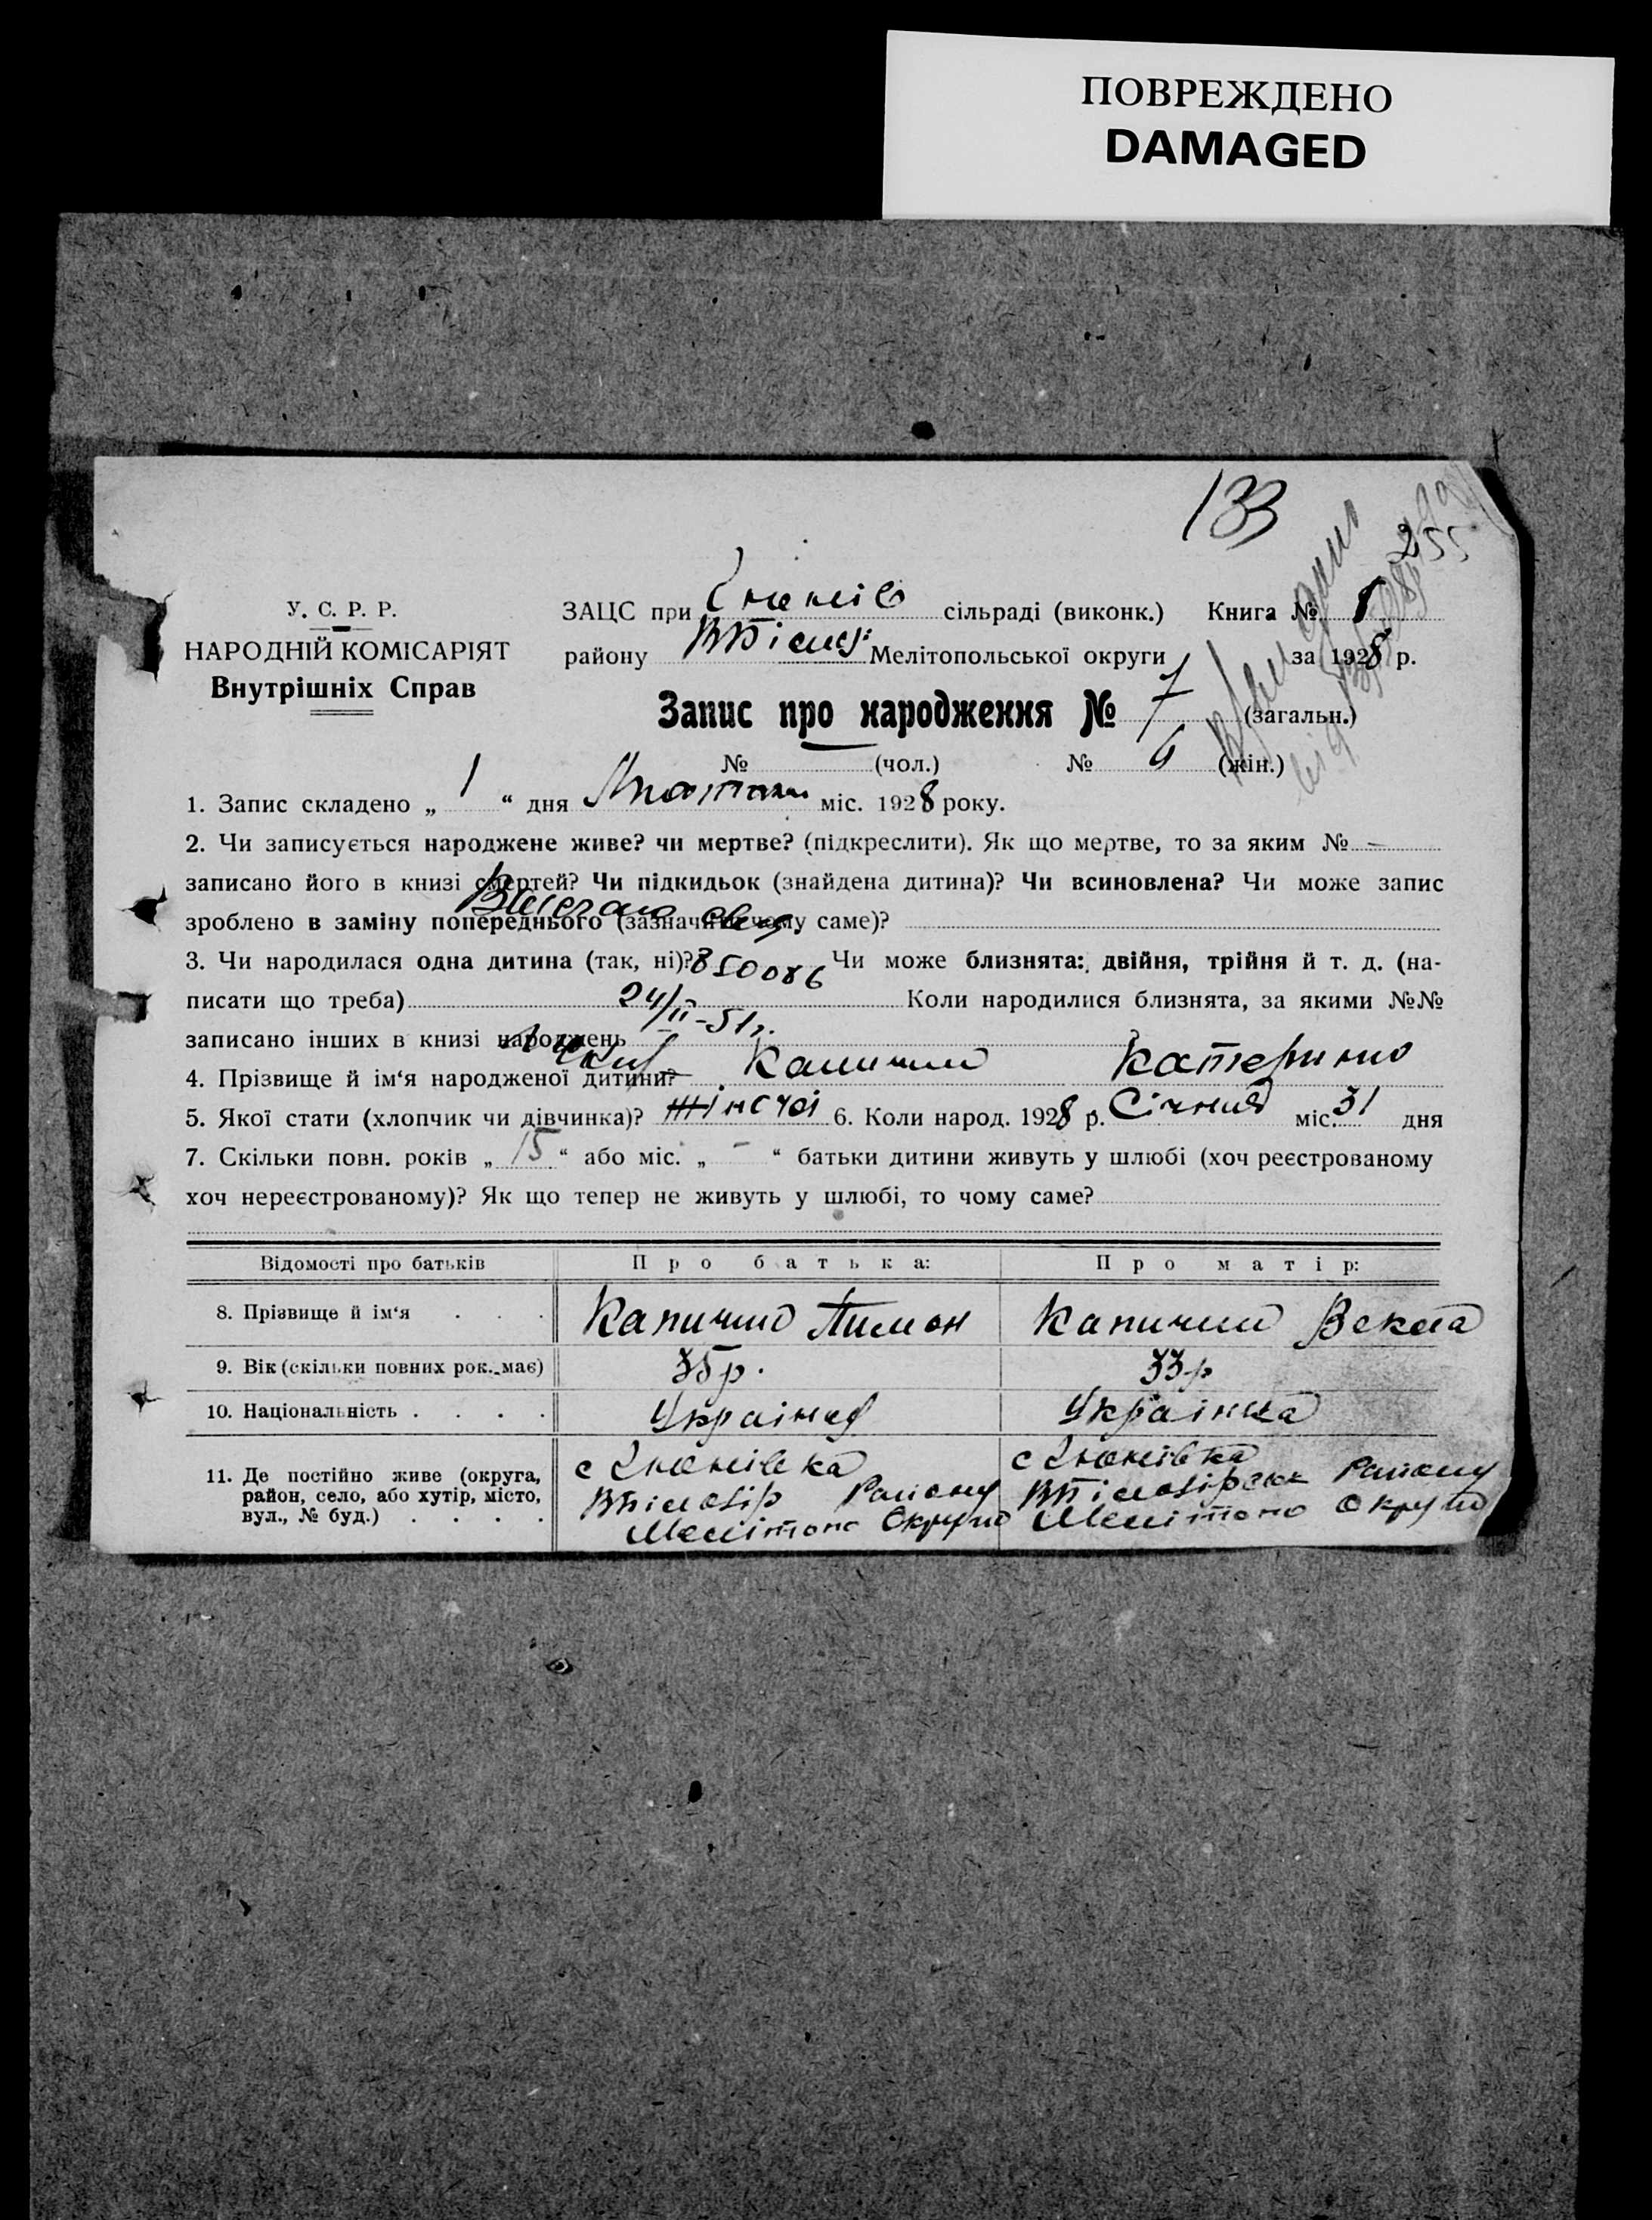 ПОВРЕЖДЕНО
DAMAGED
133
255
У. С. Р. Р.
НАРОДНІЙ КОМІСАРІЯТ
Внутрішніх Справ
ЗАЦС при сільраді (виконк.) Книга №
району Мелітопольської округи за 1928 р.
Запис про народження № 7 (загальн.)
№ (чол.) № (жін.)
1. Запис складено „ 1 “ дня міс. 1928 року.
2. Чи записується народжене живе? чи мертве? (підкреслити). Як що мертве, то за яким № -
записано його в книзі смертей? Чи підкидьок (знайдена дитина)? Чи всиновлена? Чи може запис
зроблено в заміну попереднього (зазначити чому саме)?
3. Чи народилася одна дитина (так, ні)? 850086 Чи може близнята: двійня, трійня й т. д. (на-
писати що треба) 24/II-51г. Коли народилися близнята, за якими №№
записано інших в книзі народжень
4. Прізвище й ім‘я народженої дитини? Капичин Катерина
5. Якої стати (хлопчик чи дівчинка)? 6. Коли народ. 1928 р. Січня міс. 31 дня
7. Скільки повн. років „ 15 “ або міс. „ - “ батьки дитини живуть у шлюбі (хоч реєстрованому
хоч нереєстрованому)? Як що тепер не живуть у шлюбі, то чому саме?
Відомості про батьків Про батька: Про матір:
8. Прізвище й ім‘я . . . Капичин Пимон Капичин Векла
9. Вік (скільки повних рок. має) 35р. 33р
10. Національність . . . . Українец Українка
11. Де постійно живе (округа, с с
район, село, або хутір, місто, Району Району
вул., № буд.) . . . . Мелітопо Округи Мелітопо Округи